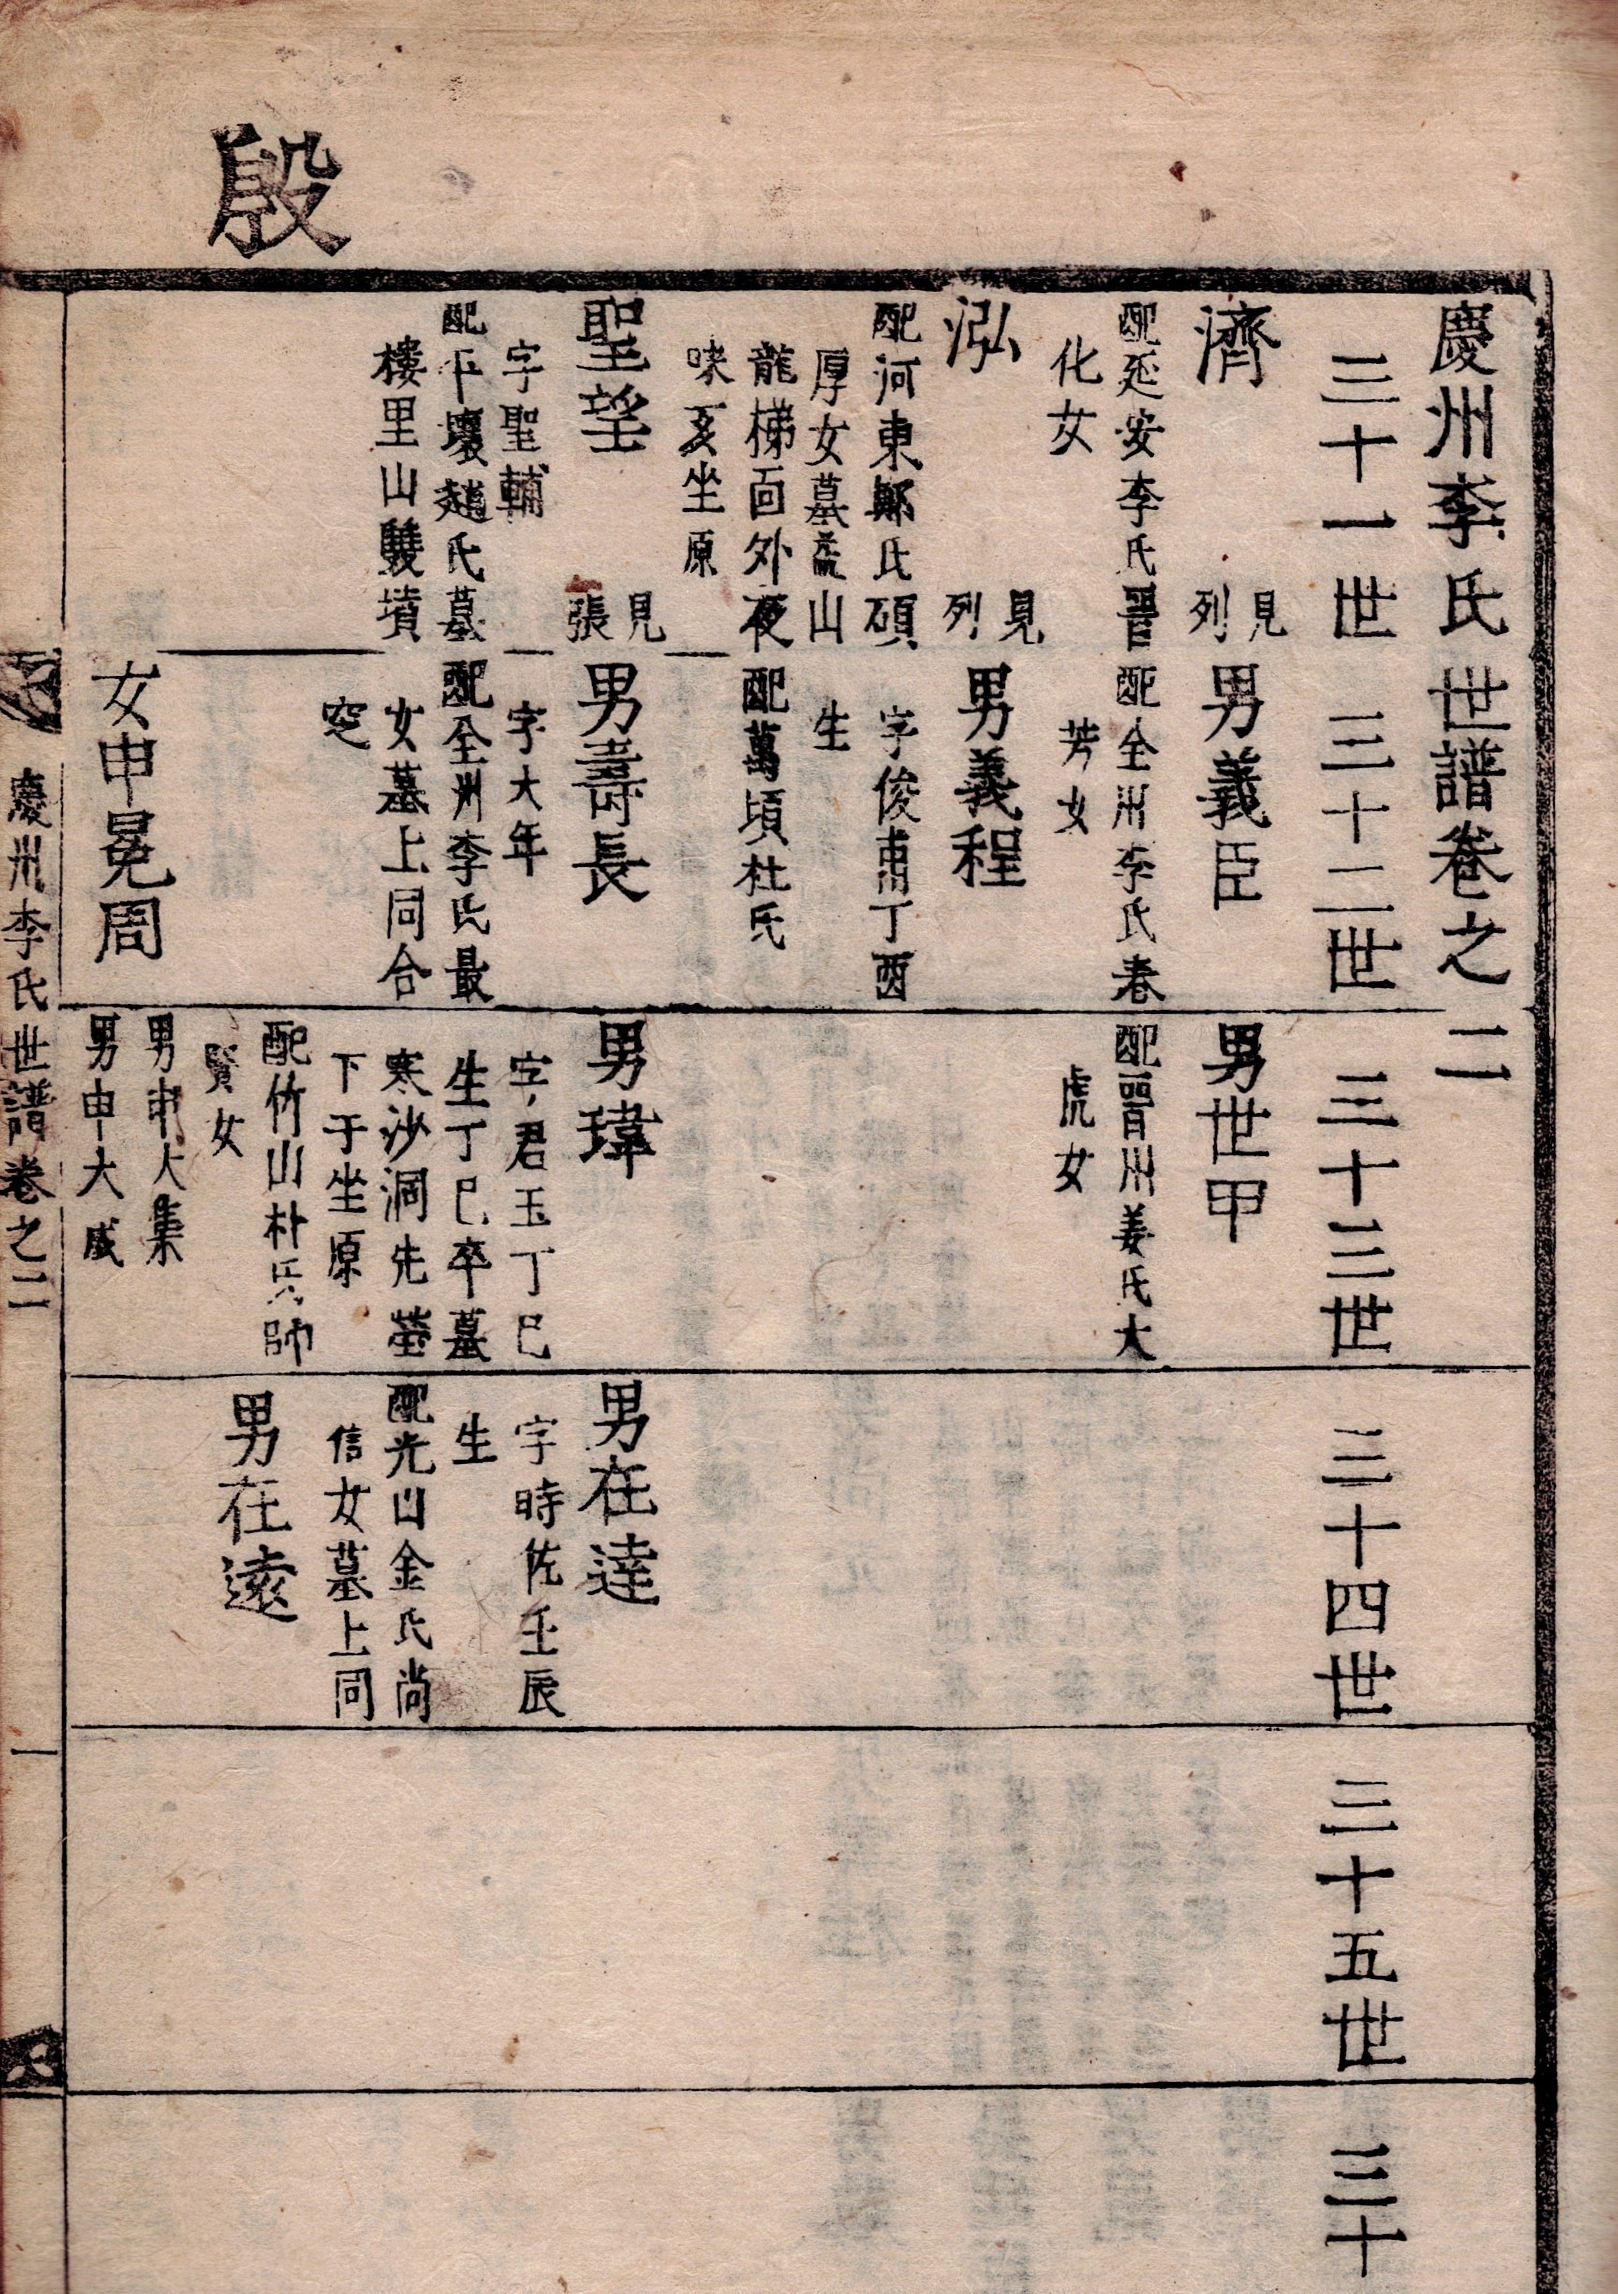 殷
慶州李氏世譜卷之二
三十一世
三十二世
三十三世
三十四世
三十五世
三十
濟
見
列
配延安李氏晋
化女
泓
見
列
配河東鄭氏碩
厚女墓茂山
龍梯面外夜
味亥坐原
聖望
見
張
字聖輔
配下壤趙氏墓
樓里山雙墳
男義臣
配全州李氏春
芳女
男義程
字俊甫丁酉
生
配萬頃杜氏
男壽長
字大年
配全州李氏最
女墓上同合
窆
女申冕周
男世甲
配晋州姜氏大
虎女
男瑋
字君玉丁巳
生丁巳卒墓
寒沙洞先塋
下于坐原
配竹山朴氏師
賢女
男申大集
男申大成
男在達
字時佐壬辰
生
配光山金氏尚
信女墓上同
男在遠
慶州李氏世譜卷之二
一